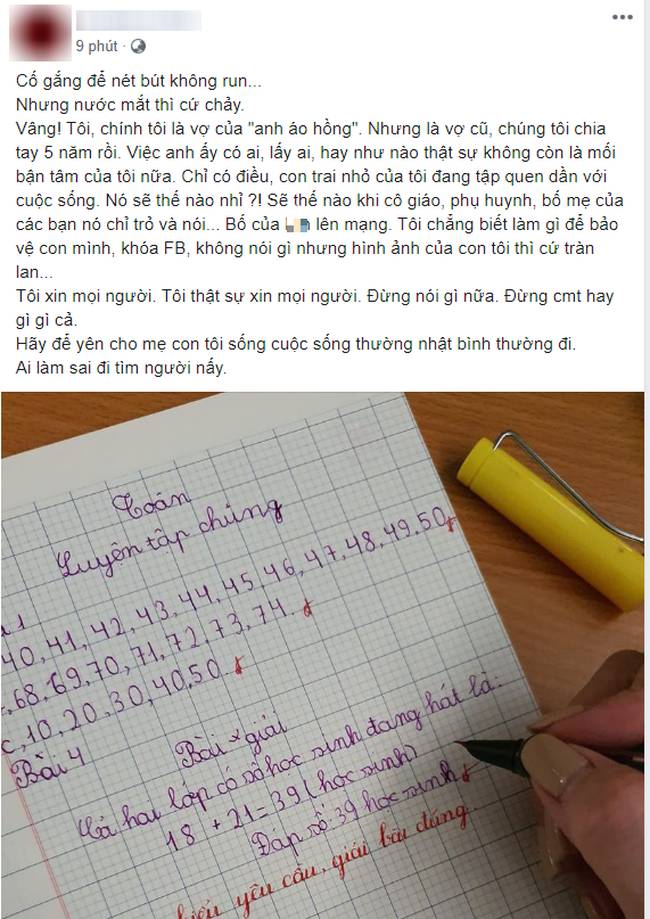 9 phút ·
Cố gắng để nét bút không run...
Nhưng nước mắt thì cứ chảy.
Vâng! Tôi, chính tôi là vợ của "anh áo hồng". Nhưng là vợ cũ, chúng tôi chia
tay 5 năm rồi. Việc anh ấy có ai, lấy ai, hay như nào thật sự không còn là mối
bận tâm của tôi nữa. Chỉ có điều, con trai nhỏ của tôi đang tập quen dần với
cuộc sống. Nó sẽ thế nào nhỉ ?! Sẽ thế nào khi cô giáo, phụ huynh, bố mẹ của
các bạn nó chỉ trỏ và nói... Bố của lên mạng. Tôi chẳng biết làm gì để bảo
vệ con mình, khóa FB, không nói gì nhưng hình ảnh của con tôi thì cứ tràn
lan...
Tôi xin mọi người. Tôi thật sự xin mọi người. Đừng nói gì nữa. Đừng cmt hay
gì gì cả.
Hãy để yên cho mẹ con tôi sống cuộc sống thường nhật bình thường đi.
Ai làm sai đi tìm người nấy.
Toán
Luyện tập chung
1
40, 41, 42, 43, 44, 45, 46, 47, 48, 49, 50
, 68, 69, 70, 71, 72, 73, 74.
c, 10, 20, 30, 40, 50.
Bài 4
Bài giải
Cả hai lớp có số học sinh đang hát là:
18 + 21 = 39 (học sinh)
Đáp số: 39 học sinh
hiểu yêu cầu, giải bài đúng.